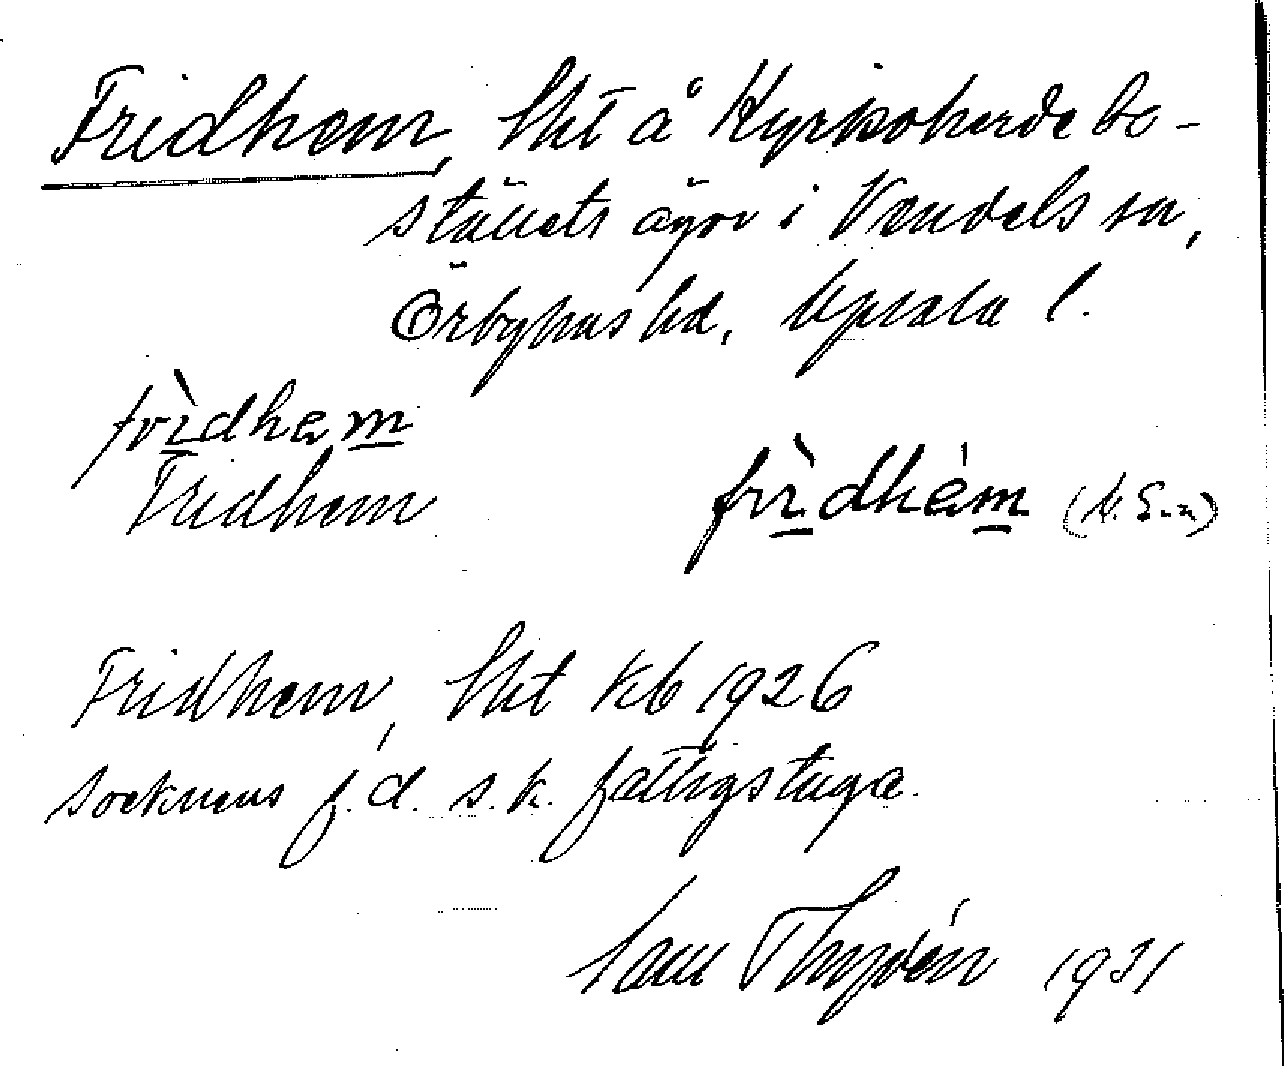 Fridhem, lht å Kyrkoherdebo-
ställets ägor i Vendels sn,
Örbyhus hd, Upsala l.
frìdhem
Fridhem
frìdhém
Fridhem, lht Kb 1926
socknens f.d. s.k. fattigstuga.
Thyvén 1931